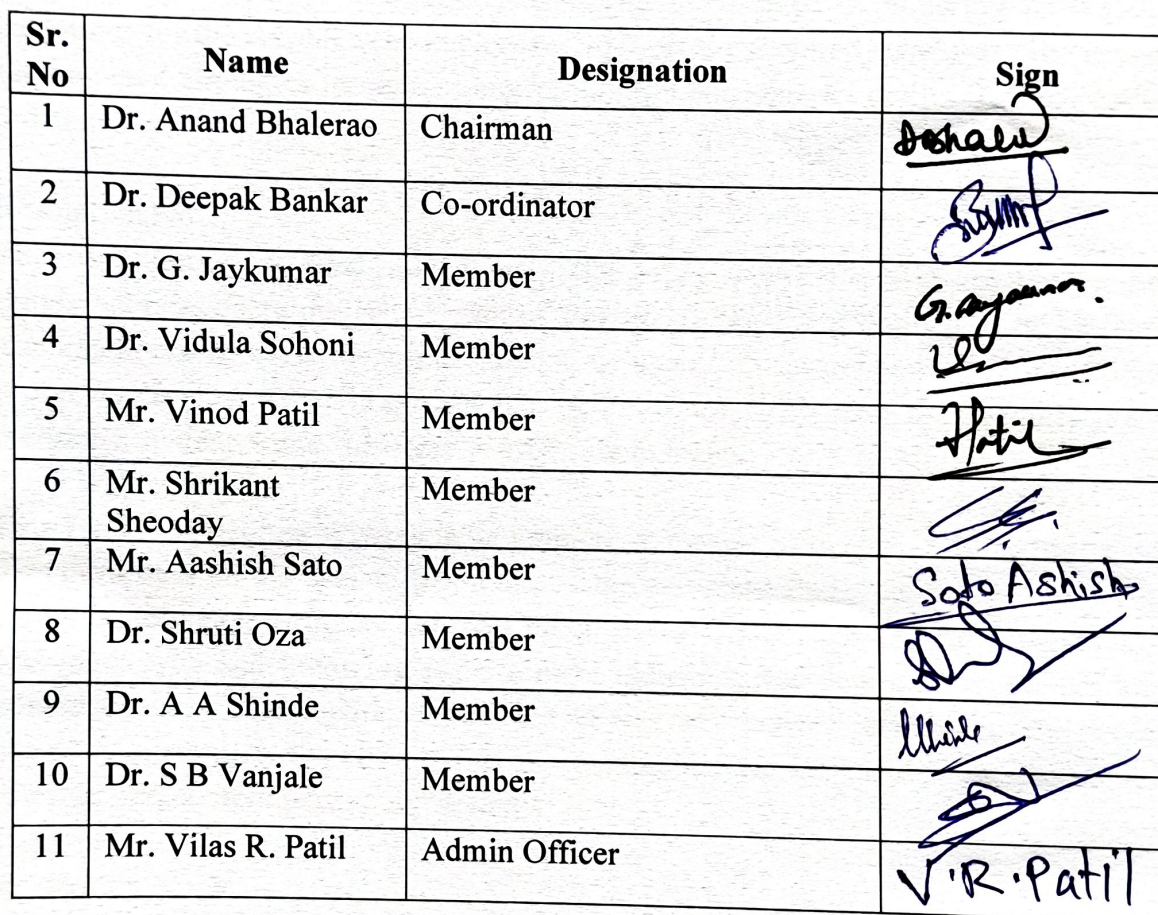 Sr. No Name Designation Sign
1 Dr. Anand Bhalerao Chairman
2 Dr. Deepak Bankar Co-ordinator
3 Dr. G. Jaykumar Member
4 Dr. Vidula Sohoni Member
5 Mr. Vinod Patil Member Patil
6 Mr. Shrikant Member
Sheoday
7 Mr. Aashish Sato Member Sato Ashish
8 Dr. Shruti Oza Member
9 Dr. A A Shinde Member
10 Dr. S B Vanjale Member
11 Mr. Vilas R. Patil Admin Officer V.R.Patil